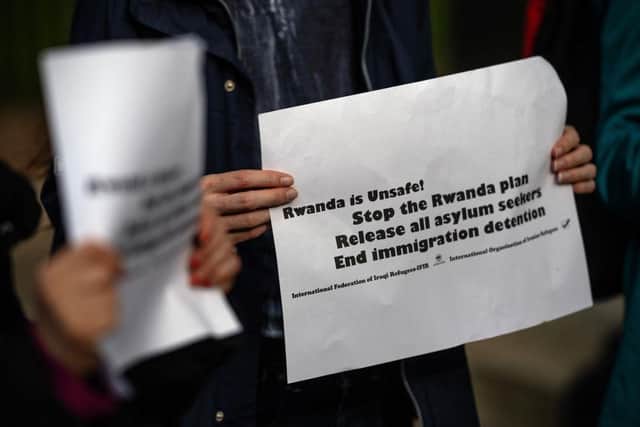 Rwanda is Unsafe!
Stop the Rwanda plan
Release all asylum seekers
End immigration detention
International Federation of Iraqi Refugees-IFIR International Organisation of Iranian Refugees